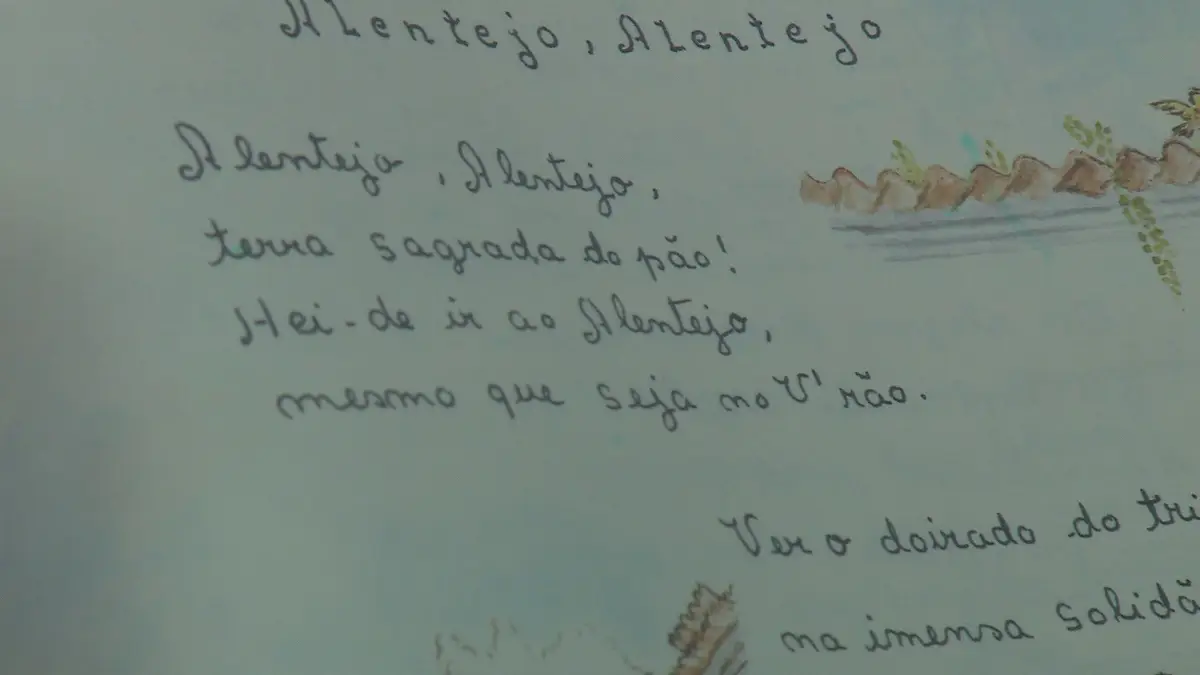 Alentejo, Alentejo
Alentejo, Alentejo,
terra sagrada do pão!
Hei-de ir ao Alentejo,
mesmo que seja no V'rão.
Ver o doirado do
na imensa